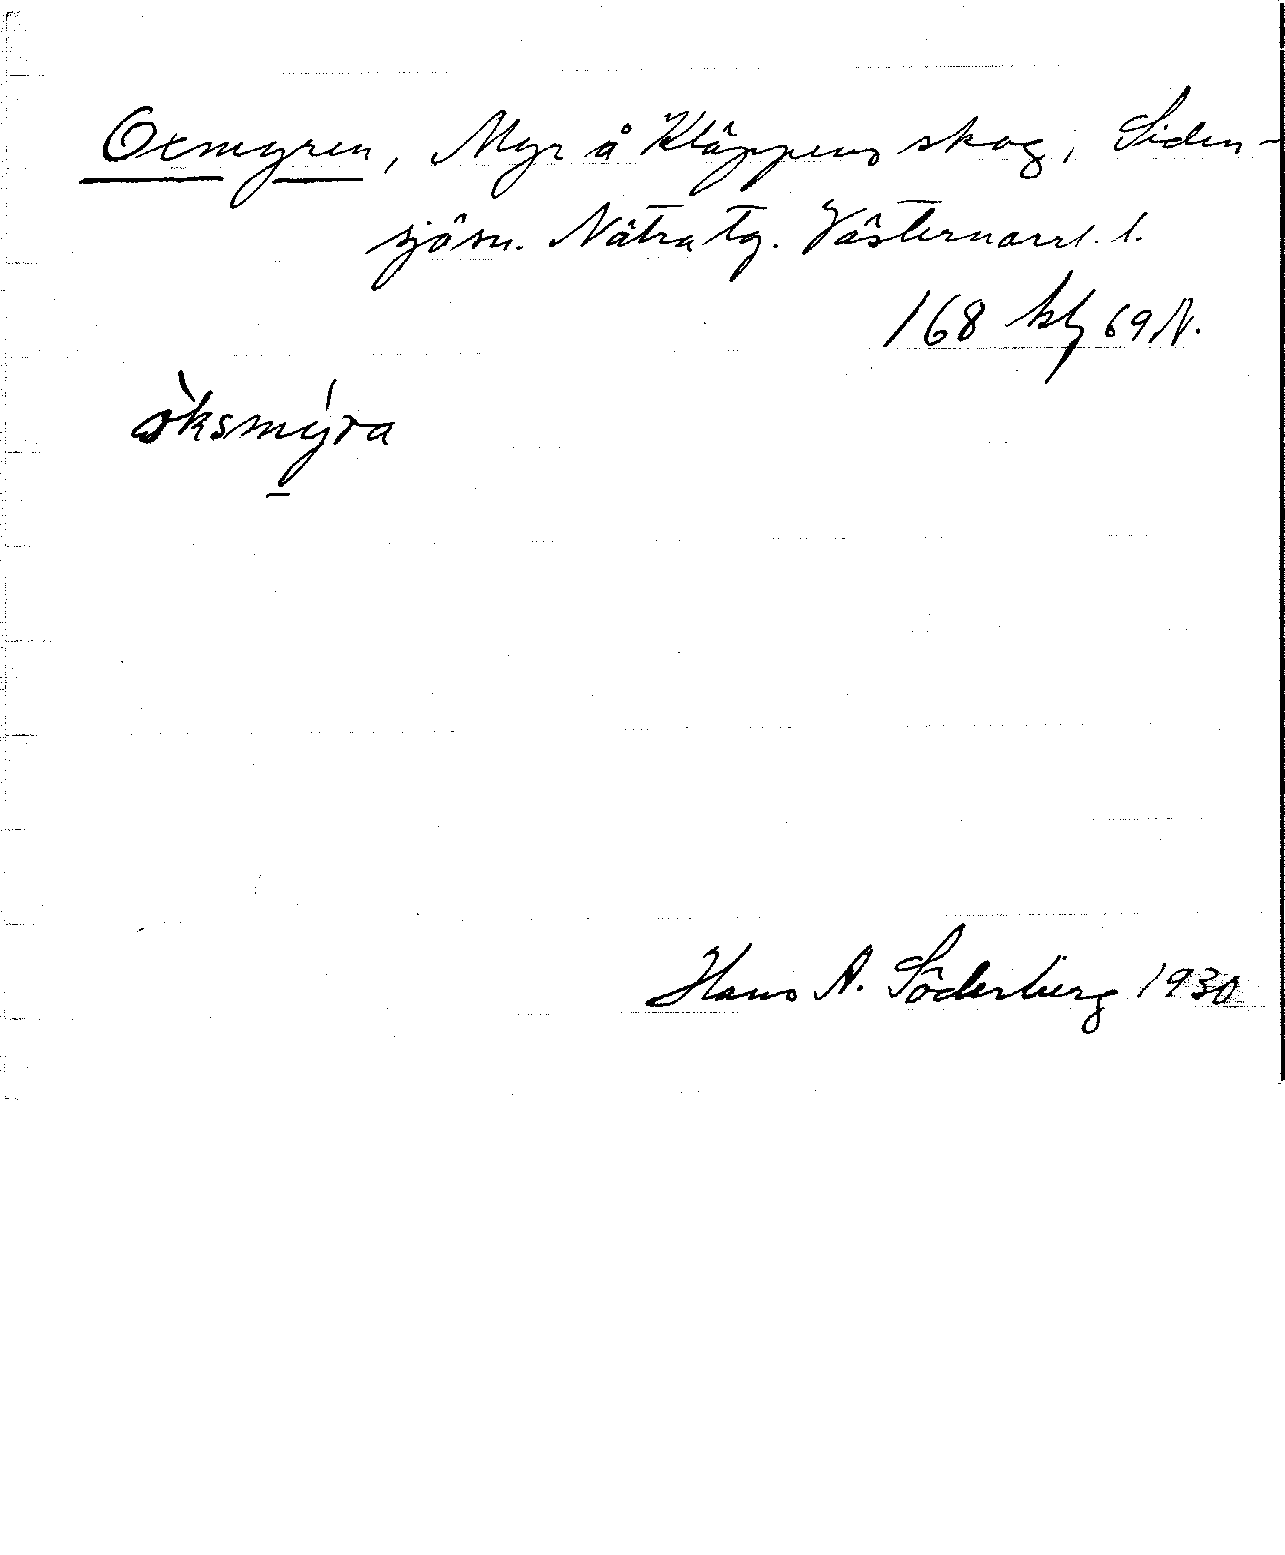 Oxmyren, Myr å Kläppens skog, Siden-
sjö sn. Nätra tg. Västernorrl. l.
168 kbl 69 N.
òksmýra
Hans A. Söderberg 1930